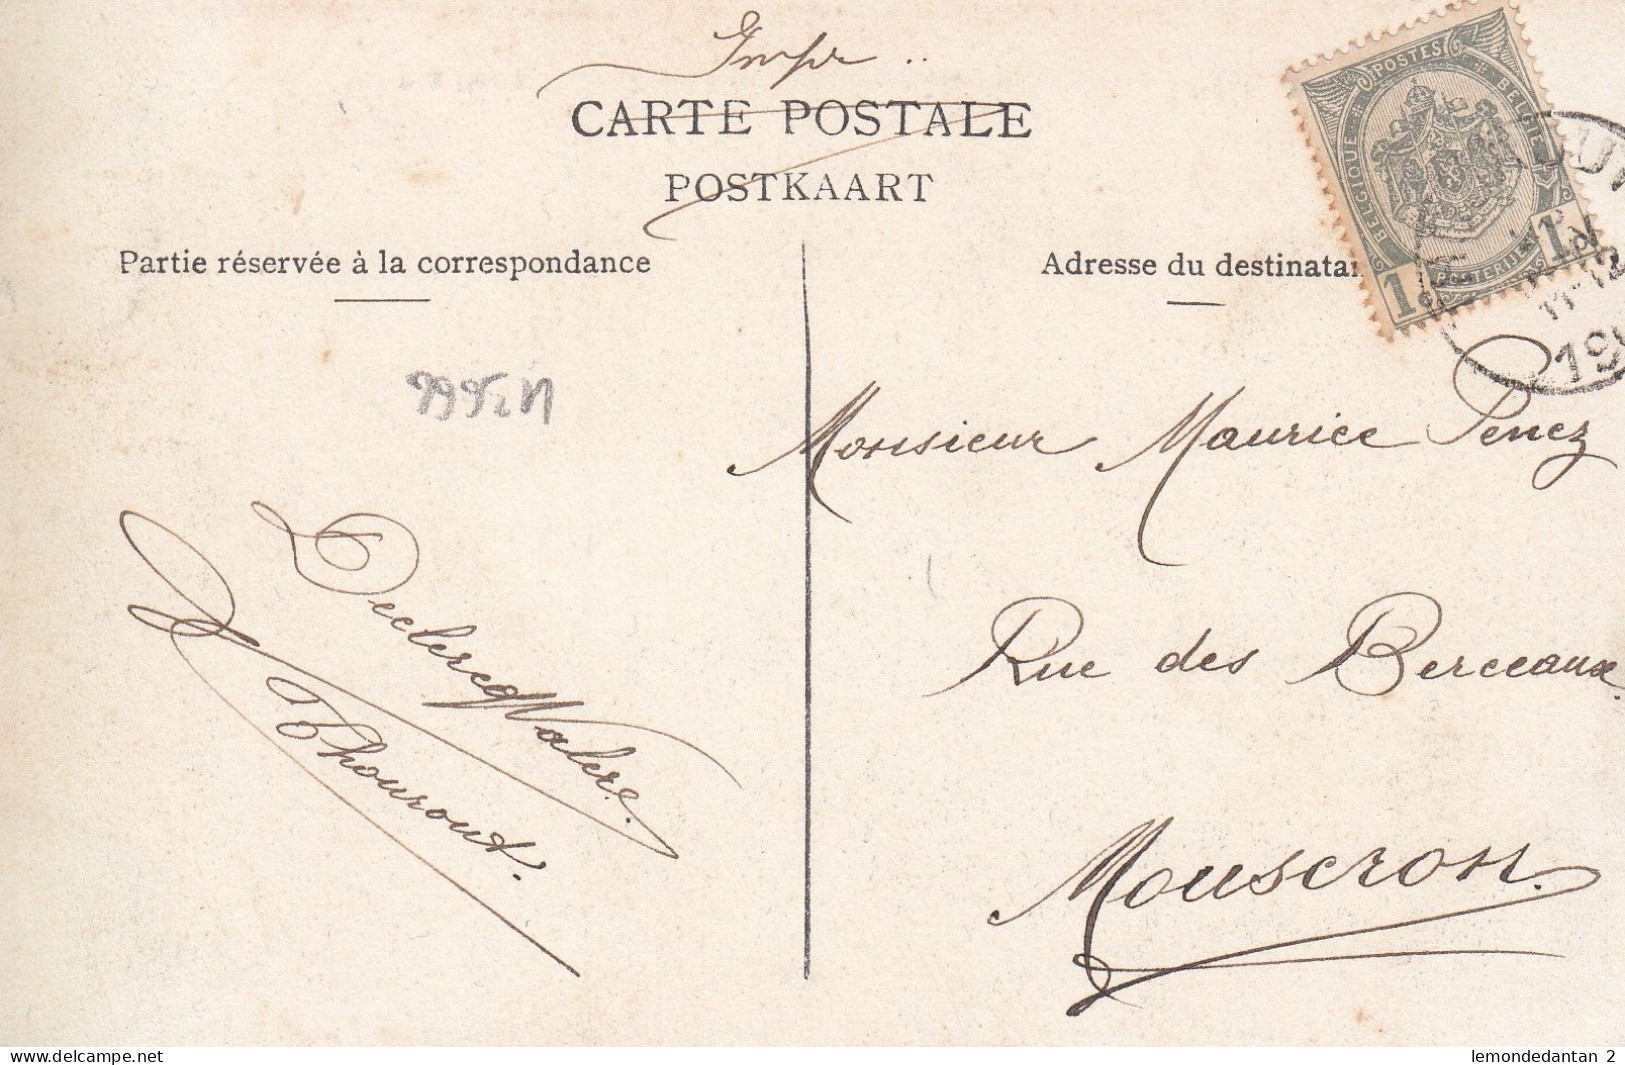 Impr ..
CARTE POSTALE
POSTKAART
POSTES BELGIE
BELGIQUE POSTERIJEN
1c 1c
11-12
19
Partie réservée à la correspondance
Adresse du destinatai
Monsieur Maurice Penez
Rue des Berceaux.
Mouscron.
Declercq Valere.
Thourout.
lemondedantan 2
www.delcampe.net